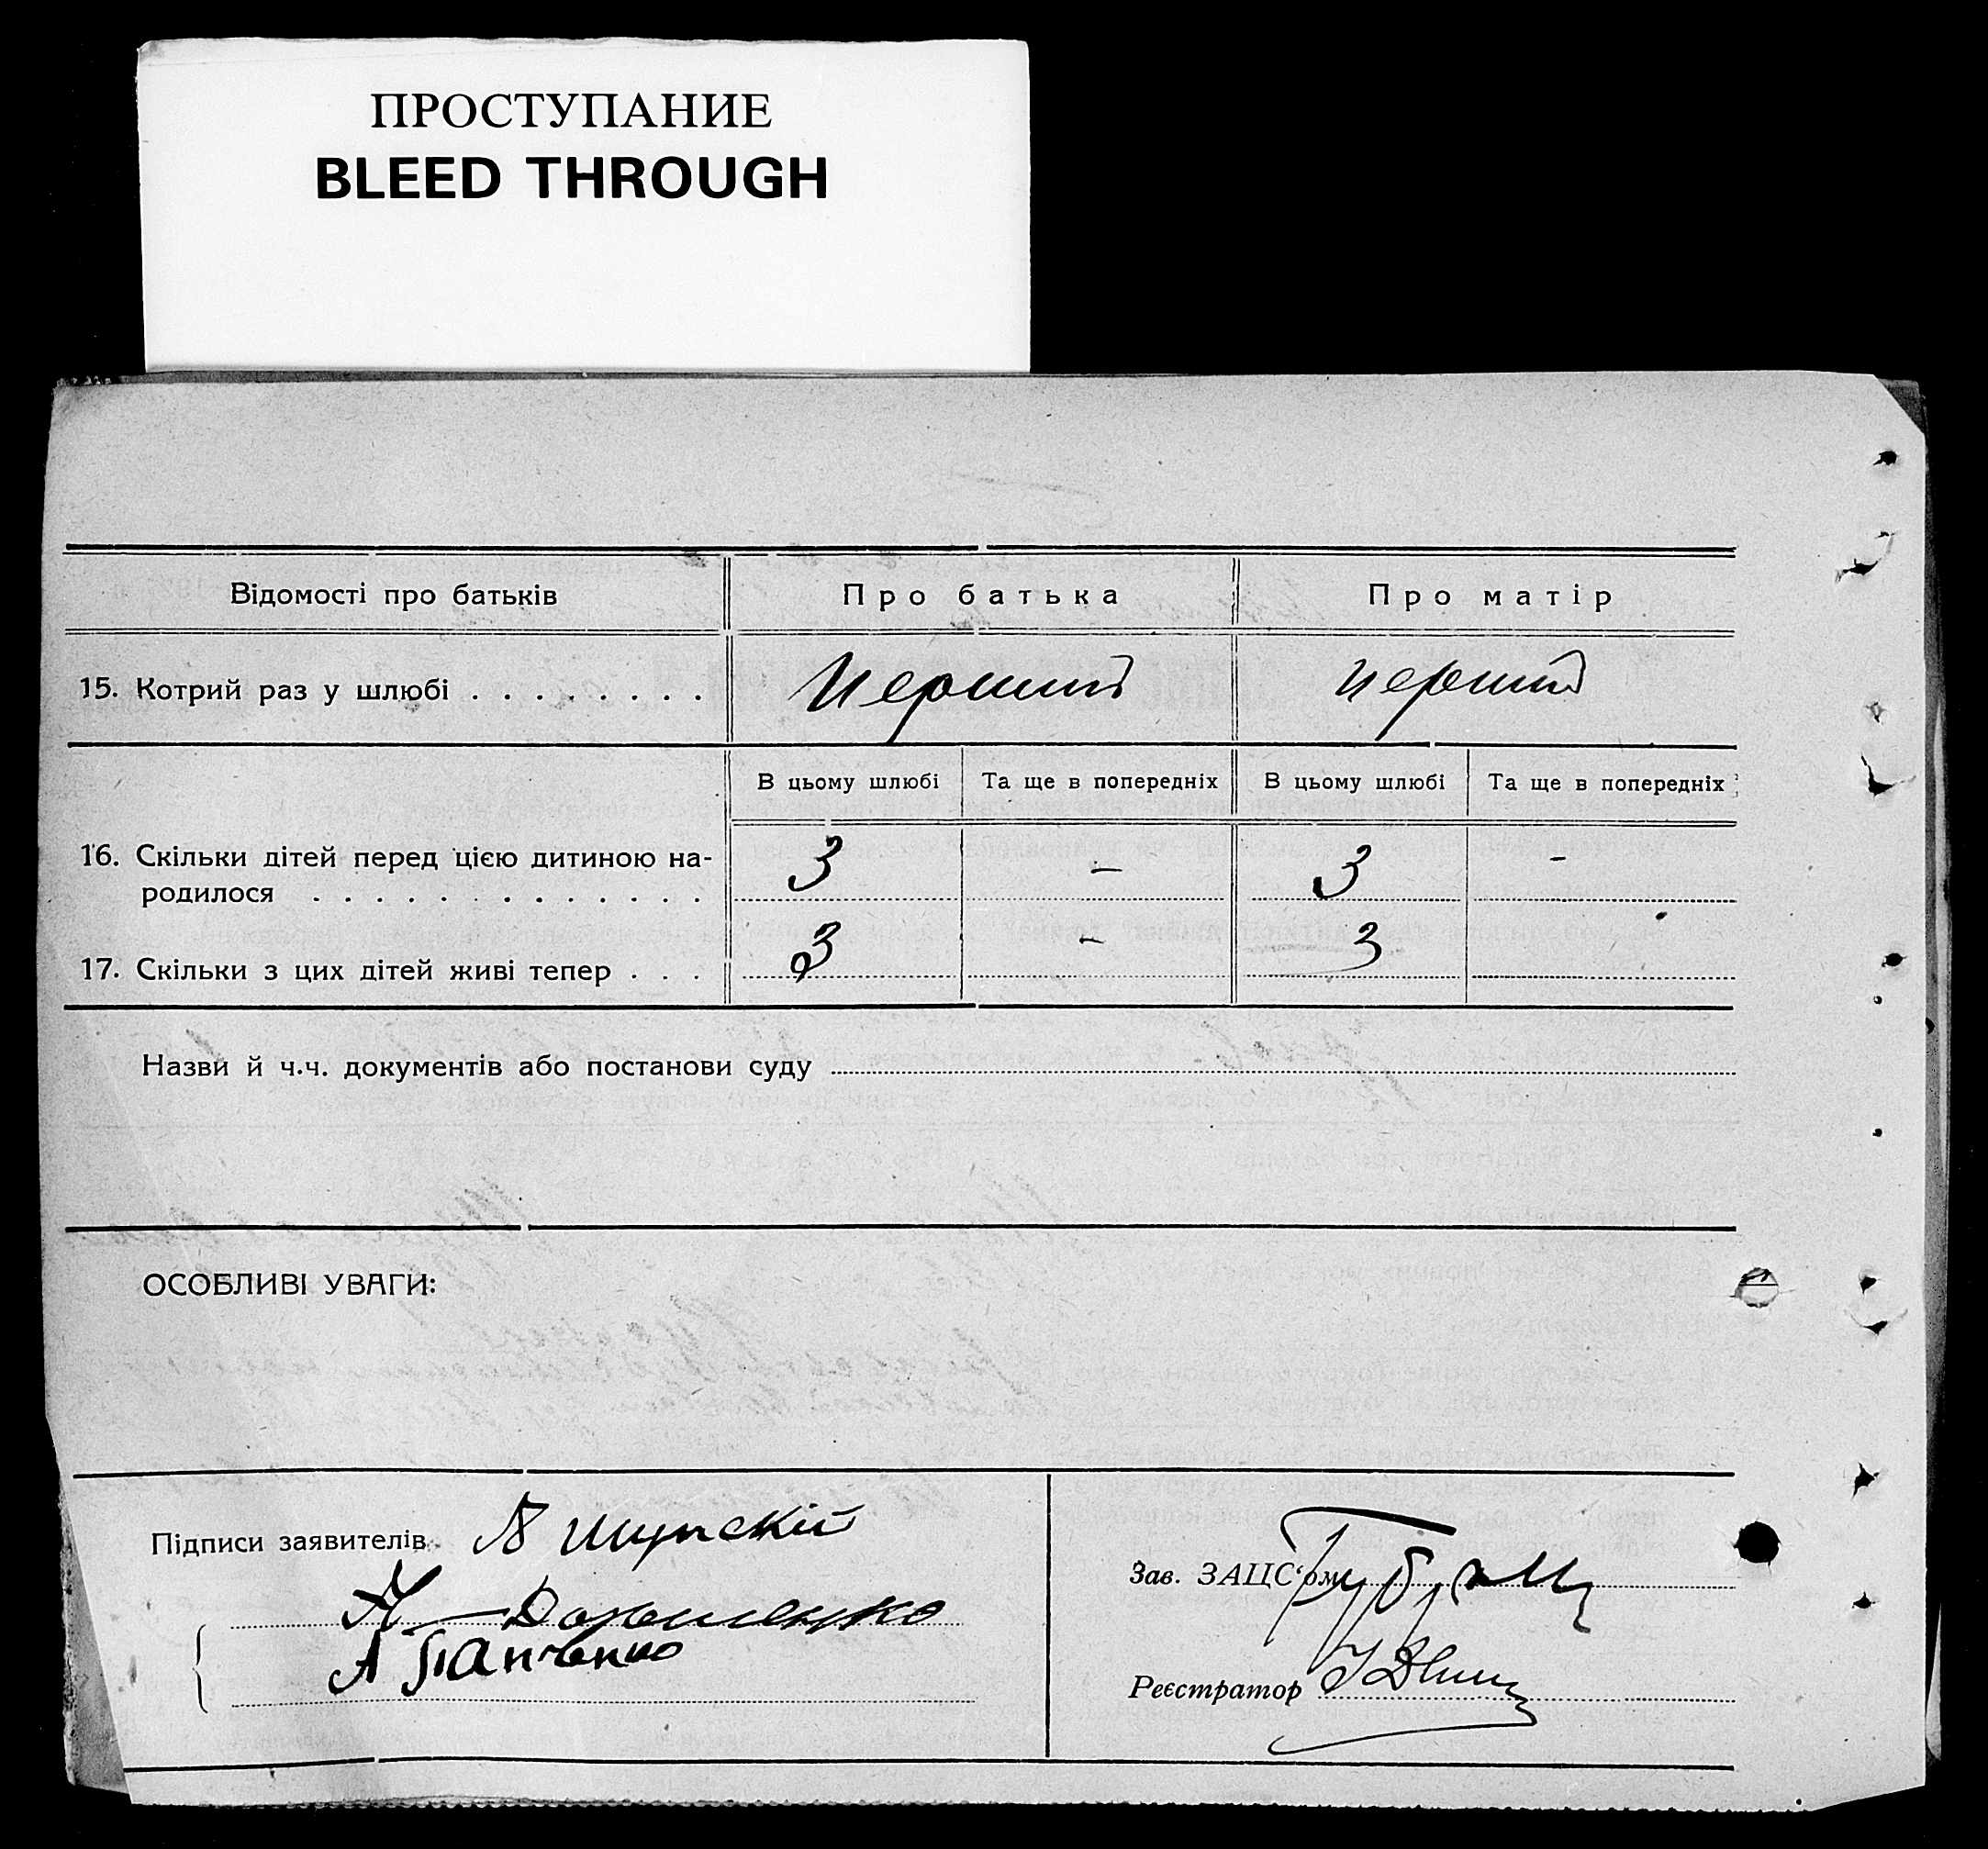 ПРОСТУПАНИЕ
BLEED THROUGH
Відомості про батьків Про батька Про матір
15. Котрий раз у шлюбі . . . . . . . . Перший перший
В цьому шлюбі Та ще в попередніх В цьому шлюбі Та ще в попередніх
16. Скільки дітей перед цією дитиною на-
родилося . . . . . . . . . . . . . 3 – 3 –
17. Скільки з цих дітей живі тепер . . . 3 – 3
Назви й ч.ч. документів або постанови суду
ОСОБЛИВІ УВАГИ:
Підписи заявителів
А Панченко
Зав. ЗАЦС'ом
Реєстратор